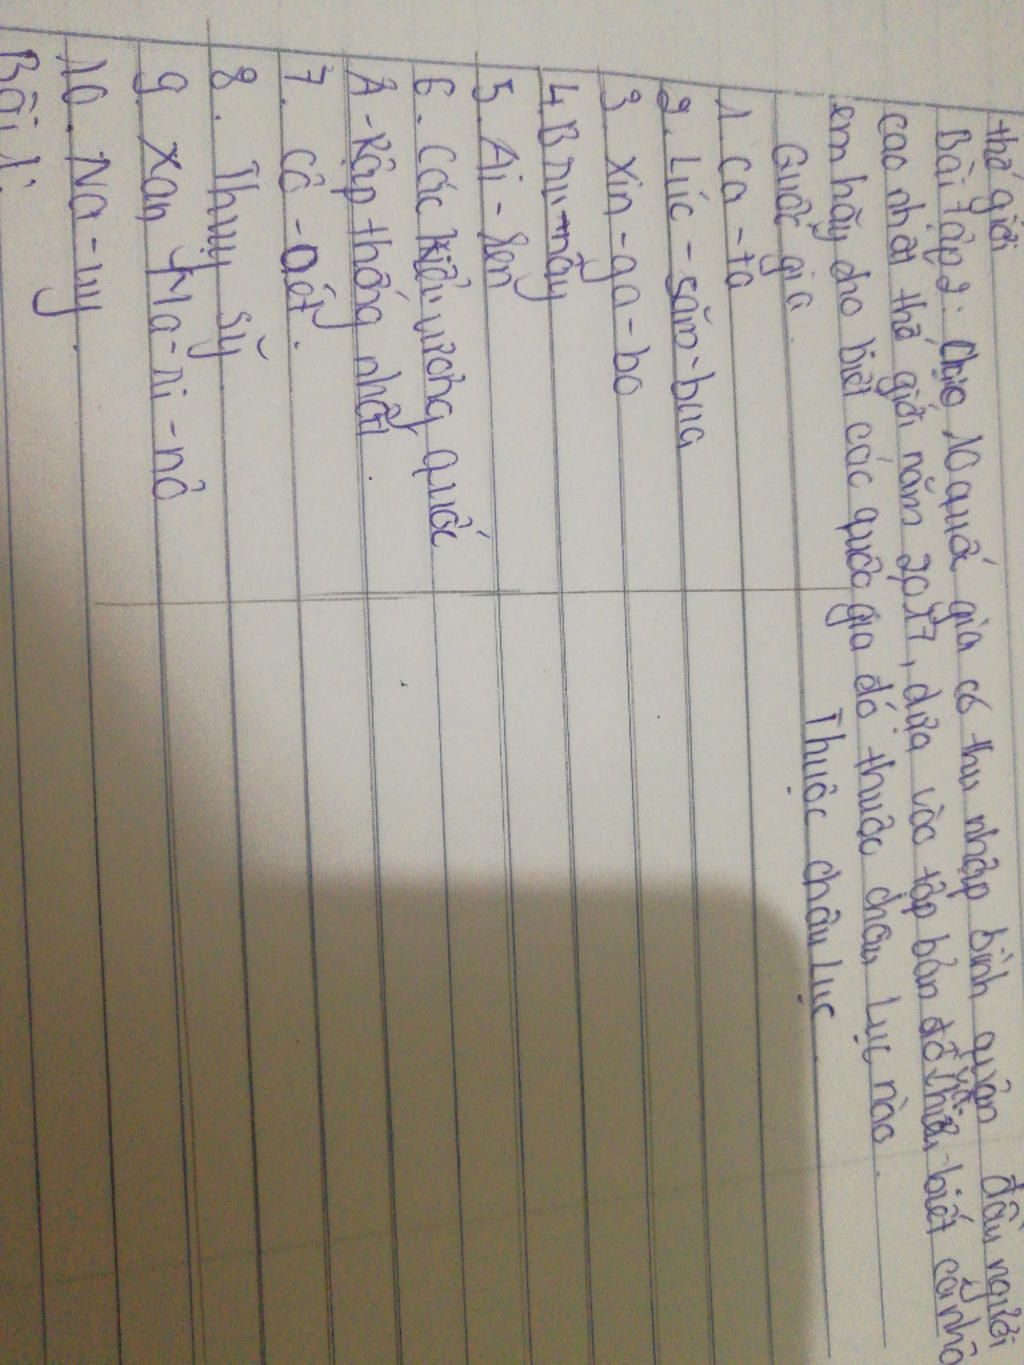 thế giới
Bài tập 2: Cho 10 quốc gia có thu nhập bình quân đầu người
cao nhất thế giới năm 2017, dựa vào tập bản đồ và hiểu biết cá nhân
em hãy cho biết các quốc gia đó thuộc châu lục nào.
Quốc gia Thuộc châu lục
1. Ca-ta
2. Lúc-săm-bua
3. Xin-ga-bo
4. Bru-nây
5. Ai-len
6. Các tiểu vương quốc
Ả-Rập thống nhất.
7. Cô-oét.
8. Thuỵ Sỹ
9. Xan Ma-ri-nô
10. Na-uy.
Bài l: